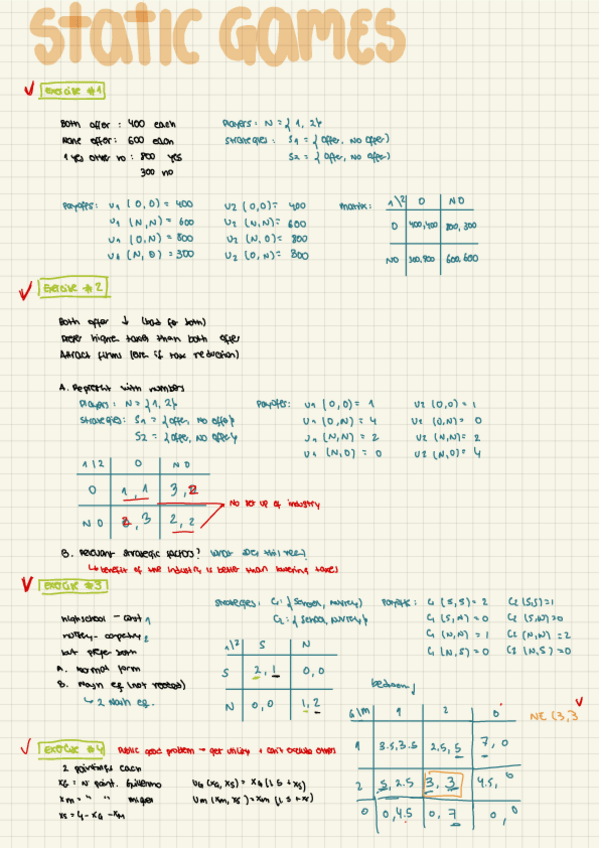 STATIC GAMES
Exercise #1
Both offer : 400 each
None offer : 600 each
1 yes other no : 800 yes
300 no
Players : N = { 1, 2 }
Strategies : S1 = { offer, No offer }
S2 = { offer, No offer }
Payoffs : U1 (O,O) = 400
U1 (N,N) = 600
U1 (O,N) = 800
U1 (N,O) = 300
U2 (O,O) = 400
U2 (N,N) = 600
U2 (N,O) = 800
U2 (O,N) = 300
Matrix :
1\2 O NO
O 400,400 800,300
NO 300,800 600,600
Exercise #2
Both offer ↓ (bad for both)
Prefer higher taxes than both offer
Attract firms (even if tax reduction)
A. Represent with numbers
Players : N = { 1, 2 }
Strategies : S1 = { offer, no offer }
S2 = { offer, no offer }
Payoffs : U1 (O,O) = 1
U1 (O,N) = 4
U1 (N,N) = 2
U1 (N,O) = 0
U2 (O,O) = 1
U2 (O,N) = 0
U2 (N,N) = 2
U2 (N,O) = 4
1\2 O NO
O 1,1 3,2
NO 2,3 2,2
No set up of industry
B. Relevant strategic factors?
↳ benefit of the industry is better than lowering taxes
Exercise #3
Highschool - cont 1
nursery - 2
but prefer both
A. Normal form
B. Nash eq (not rooted)
↳ 2 Nash eq.
Strategies : C1 : { School, Nursery }
C2 : { School, Nursery }
Payoffs : C1 (S,S) = 2
C1 (S,N) = 0
C1 (N,N) = 1
C1 (N,S) = 0
C2 (S,S) = 1
C2 (S,N) = 0
C2 (N,N) = 2
C2 (N,S) = 0
1\2 S N
S 2,1 0,0
N 0,0 1,2
Exercise #4
Public good problem → get utility + can't exclude others
2 paintings each
XG = nº paint. Guillermo
XM = " " miguel
XS = 4 - XG - XM
UG (XG, XS) = XG (1.5 + XS)
UM (XM, XS) = XM (1.5 + XS)
bedroom
G\M 1 2 0
1 3.5,3.5 2.5,5 7,0
2 5,2.5 3,3 4.5,0
0 0,4.5 0,7 0,0
NE (3,3